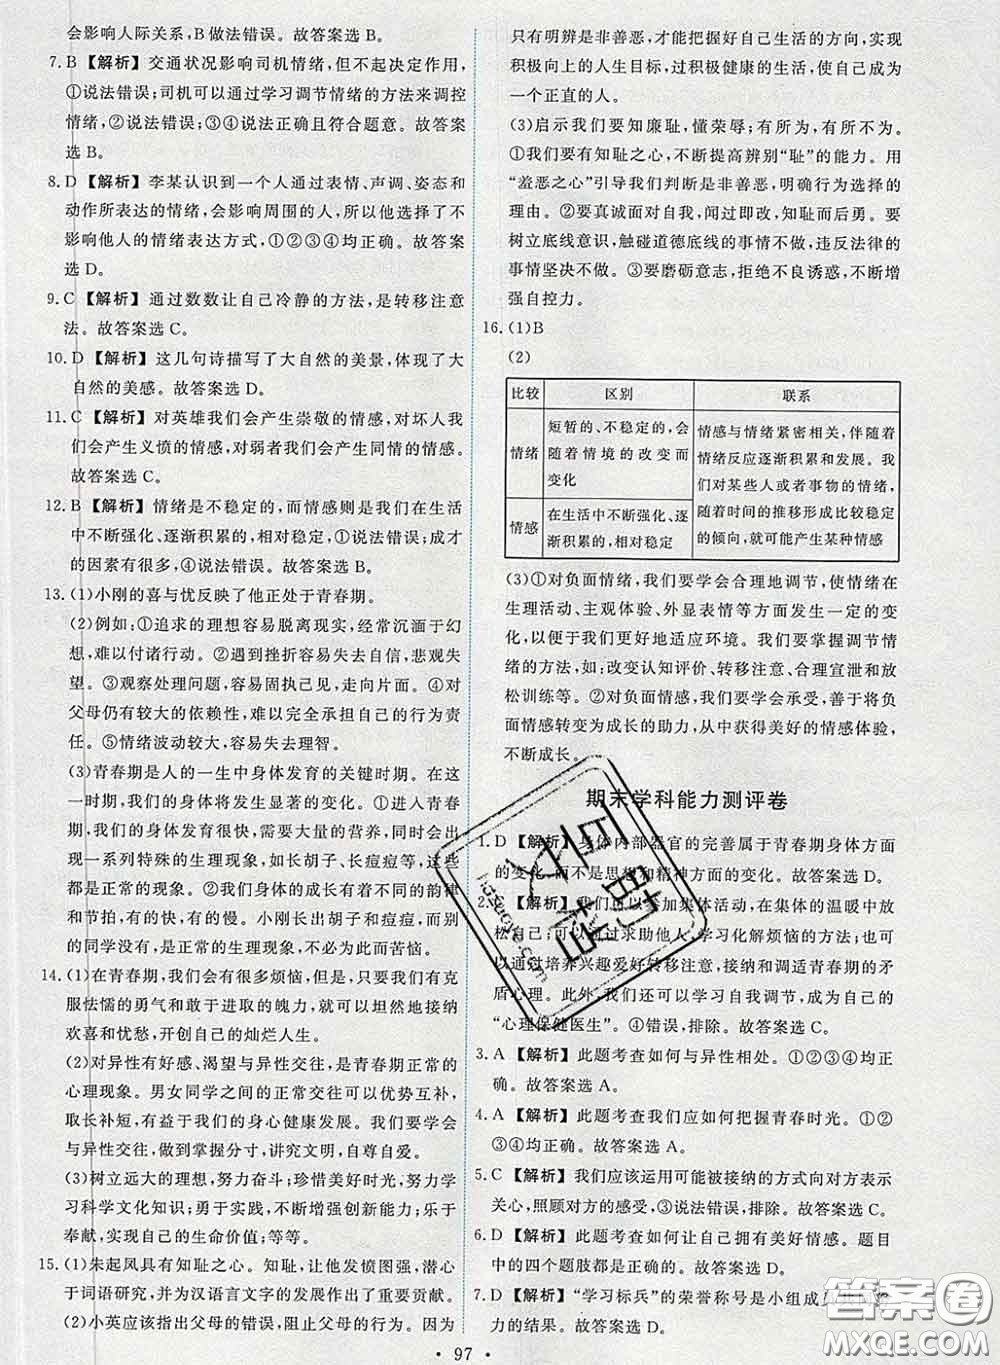 会影响人际关系,B做法错误。故答案选B。
7. B 【解析】 交通状况影响司机情绪,但不起决定作用,
①说法错误;司机可以通过学习调节情绪的方法来调控
情绪,②说法错误;③④说法正确且符合题意。故答案
选B。
8. D 【解析】 李某认识到一个人通过表情、声调、姿态和
动作所表达的情绪,会影响周围的人,所以他选择了不
影响他人的情绪表达方式,①②③④均正确。故答案
选D。
9. C 【解析】 通过数数让自己冷静的方法,是转移注意
法。故答案选C。
10. D 【解析】 这几句诗描写了大自然的美景,体现了大
自然的美感。故答案选D。
11. C 【解析】 对英雄我们会产生崇敬的情感,对坏人我
们会产生义愤的情感,对弱者我们会产生同情的情感。
故答案选C。
12. B 【解析】 情绪是不稳定的,而情感则是我们在生活
中不断强化、逐渐积累的,相对稳定,①说法错误;成才
的因素有很多,④说法错误。故答案选B。
13. (1)小刚的喜与忧反映了他正处于青春期。
(2)例如:①追求的理想容易脱离现实,经常沉湎于幻
想,难以付诸行动。②遇到挫折容易失去自信,悲观失
望。③观察处理问题,容易固执己见,走向片面。④对
父母仍有较大的依赖性,难以完全承担自己的行为责
任。⑤情绪波动较大,容易失去理智。
(3)青春期是人的一生中身体发育的关键时期。在这
一时期,我们的身体将发生显著的变化。①进入青春
期,我们的身体发育加快,需要大量的营养,同时会出
现一系列特殊的生理现象,如长胡子、长痘痘等,这些
都是正常的现象。②我们身体的成长有着不同的韵律
和节拍,有的快,有的慢。小刚长出胡子和痘痘,而有
的同学没有,是正常的生理现象,不必为此而苦恼。
14. (1)在青春期,我们会有很多烦恼,但是,只要我们有克
服怯懦的勇气和敢于进取的魄力,就可以坦然地接纳
欢喜和忧愁,开创自己的灿烂人生。
(2)对异性有好感、渴望与异性交往,是青春期正常的
心理现象。男女同学之间的正常交往可以优势互补,
取长补短,有益于我们的身心健康发展。我们要学会
与异性交往,做到掌握分寸,讲究文明,自尊自爱。
(3)树立远大的理想,努力奋斗;珍惜美好时光,努力学
习科学文化知识;勇于实践,不断增强创新能力;乐于
奉献,实现自己的生命价值;等等。
15. (1)朱起凤具有知耻之心。知耻,让他发愤图强,潜心
于词语研究,并为汉语言文字的发展作出了重要贡献。
(2)小英应该指出父母的错误,阻止父母的行为。因为
只有明辨是非善恶,才能把握好自己生活的方向,实现
积极向上的人生目标,过积极健康的生活,使自己成为
一个正直的人。
(3)启示我们要知廉耻,懂荣辱;有所为,有所不为。
①我们要有知耻之心,不断提高辨别“耻”的能力。用
“羞恶之心”引导我们判断是非善恶,明确行为选择的
理由。②要真诚面对自我,闻过即改,知耻而后勇。要
树立底线意识,触碰道德底线的事情不做,违反法律的
事情坚决不做。③要磨砺意志,拒绝不良诱惑,不断增
强自控力。
16. (1)B
(2)
比较 区别 联系
情绪 短暂的、不稳定的,会随着情境的改变而变化 情感与情绪紧密相关,伴随着情绪反应逐渐积累和发展。我们对某些人或者事物的情绪,随着时间的推移形成比较稳定的倾向,就可能产生某种情感
情感 在生活中不断强化、逐渐积累的,相对稳定
(3)①对负面情绪,我们要学会合理地调节,使情绪在
生理活动、主观体验、外显表情等方面发生一定的变
化,以便于我们更好地适应环境。我们要掌握调节情
绪的方法,如:改变认知评价、转移注意、合理宣泄和放
松训练等。②对负面情感,我们要学会承受,善于将负
面情感转变为成长的助力,从中获得美好的情感体验,
不断成长。
期末学科能力测评卷
1. D 【解析】 身体内部器官的完善属于青春期身体方面
的变化,而不是思想和精神方面的变化。故答案选D。
2. C 【解析】 我们可以参加集体活动,在集体的温暖中放
松自己;可以通过求助他人,学习化解烦恼的方法;也可
以通过培养兴趣爱好转移注意,接纳和调适青春期的矛
盾心理。此外,我们还可以学习自我调节,成为自己的
“心理保健医生”。④错误,排除。故答案选C。
3. A 【解析】 此题考查如何与异性相处。①②③④均正
确。故答案选A。
4. A 【解析】 此题考查我们应如何把握青春时光。①②
③④均正确。故答案选A。
5. C 【解析】 我们应该运用可能被接纳的方式向对方表示
关心,照顾对方的感受,③说法错误,排除。故答案选C。
6. D 【解析】 此题考查如何让自己拥有美好情感。题目
中的四个题肢都是正确的。故答案选D。
7. D 【解析】 “学习标兵”的荣誉称号是小组成员
力的结果。故答案选D。
· 97 ·
答案圈
MXQE.COM